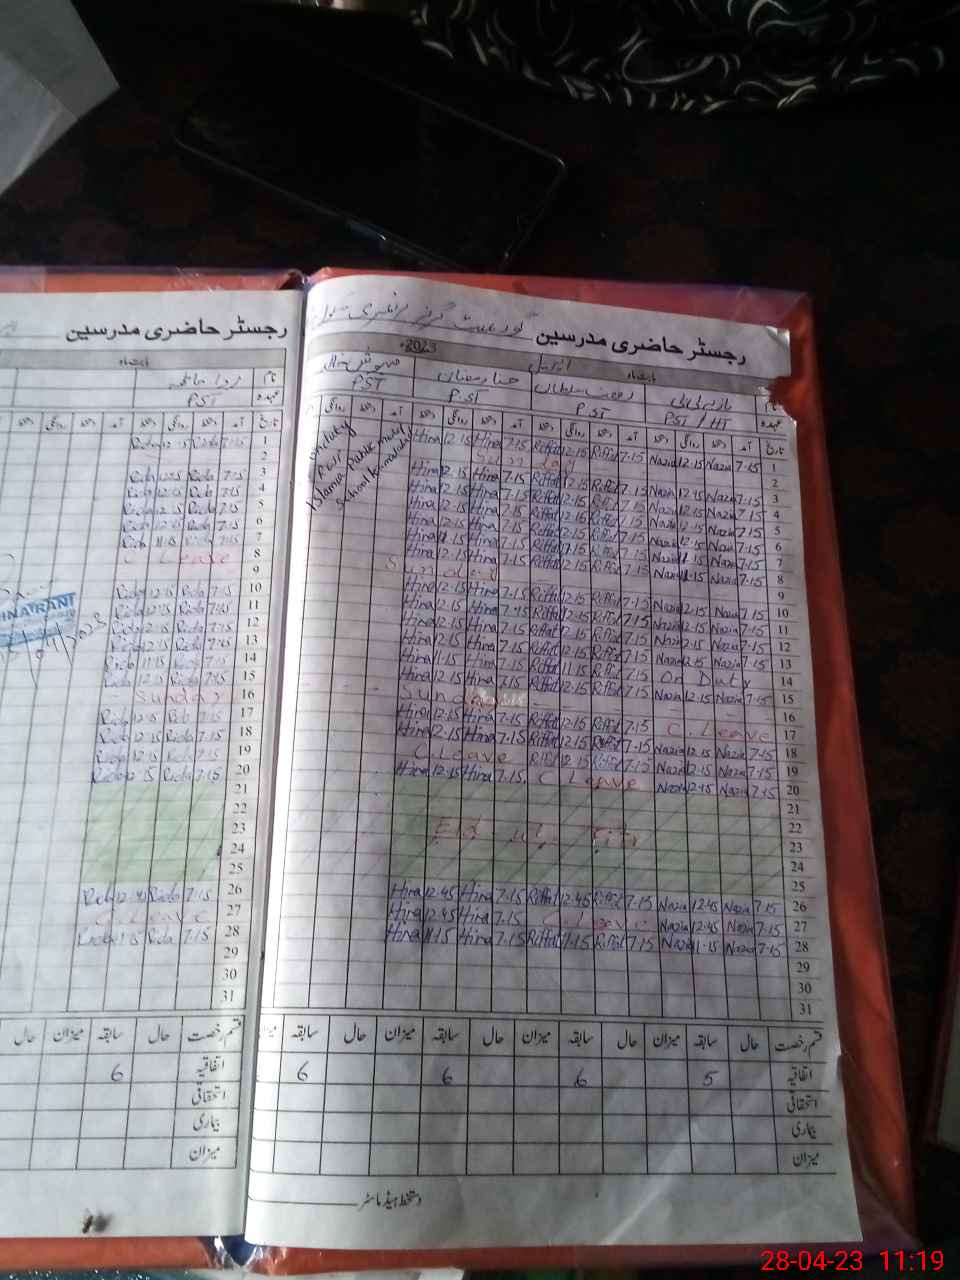 رجسٹر حاضری مدرسین
نام
عہدہ PST
تاریخ آمد دستخط روانگی دستخط آمد دستخط روانگی دستخط
1 7.15 Rida 12.15 Rida
2
3 7.15 Rida 12.15 Rida
4 7.15 Rida 12.15 Rida
5 7.15 Rida 12.15 Rida
6 7.15 Rida 12.15 Rida
7 7.15 Rida 11.15 Rida
8 C. Leave
9
10 7.15 Rida 12.15 Rida
11 7.15 Rida 12.15 Rida
12 7.15 Rida 12.15 Rida
13 7.15 Rida 12.15 Rida
14 7.15 Rida 11.15 Rida
15 7.15 Rida 12.15 Rida
16 Sunday
17 7.15 Rida 12.15 Rida
18 7.15 Rida 12.15 Rida
19 7.15 Rida 12.15 Rida
20 7.15 Rida 12.15 Rida
21
22
23
24
25
26 7.15 Rida 12.45 Rida
27 C. Leave
28 7.15 Rida 11.15 Rida
29
30
31
قسم رخصت حال سابقہ میزان حال
اتفاقیہ 6
استحقاقی
بیماری
میزان
رجسٹر حاضری مدرسین گورنمنٹ گرلز پرائمری سکول
بابت ماہ اپریل 2023ء
نام نازیہ بی بی رفعت سلطان حنا رمضان مہوش خالد
عہدہ PST / HT PST PST PST
تاریخ آمد دستخط روانگی دستخط آمد دستخط روانگی دستخط آمد دستخط روانگی دستخط آمد دستخط روانگی
on duty
Islamia Public model
School
1 7.15 Nazia 12.15 Nazia 7.15 Riffat 12.15 Riffat 7.15 Hira 12.15 Hira
2 Sunday
3 7.15 Nazia 12.15 Nazia 7.15 Riffat 12.15 Riffat 7.15 Hira 12.15 Hira
4 7.15 Nazia 12.15 Nazia 7.15 Riffat 12.15 Riffat 7.15 Hira 12.15 Hira
5 7.15 Nazia 12.15 Nazia 7.15 Riffat 12.15 Riffat 7.15 Hira 12.15 Hira
6 7.15 Nazia 12.15 Nazia 7.15 Riffat 12.15 Riffat 7.15 Hira 12.15 Hira
7 7.15 Nazia 11.15 Nazia 7.15 Riffat 11.15 Riffat 7.15 Hira 11.15 Hira
8 7.15 Nazia 12.15 Nazia 7.15 Riffat 12.15 Riffat 7.15 Hira 12.15 Hira
9 Sunday
10 7.15 Nazia 12.15 Nazia 7.15 Riffat 12.15 Riffat 7.15 Hira 12.15 Hira
11 7.15 Nazia 12.15 Nazia 7.15 Riffat 12.15 Riffat 7.15 Hira 12.15 Hira
12 7.15 Nazia 12.15 Nazia 7.15 Riffat 12.15 Riffat 7.15 Hira 12.15 Hira
13 7.15 Nazia 12.15 Nazia 7.15 Riffat 12.15 Riffat 7.15 Hira 12.15 Hira
14 On Duty 7.15 Riffat 11.15 Riffat 7.15 Hira 11.15 Hira
15 7.15 Nazia 12.15 Nazia 7.15 Riffat 12.15 Riffat 7.15 Hira 12.15 Hira
16 Sunday
17 C. Leave 7.15 Riffat 12.15 Riffat 7.15 Hira 12.15 Hira
18 7.15 Nazia 12.15 Nazia 7.15 Riffat 12.15 Riffat 7.15 Hira 12.15 Hira
19 7.15 Nazia 12.15 Nazia 7.15 Riffat 12.15 Riffat C. Leave
20 7.15 Nazia 12.15 Nazia C Leave 7.15 Hira 12.15 Hira
21
22
23 Eid ul Fitr
24
25
26 7.15 Nazia 12.45 Nazia 7.15 Riffat 12.45 Riffat 7.15 Hira 12.45 Hira
27 7.15 Nazia 12.45 Nazia C Leave 7.15 Hira 12.45 Hira
28 7.15 Nazia 11.15 Nazia 7.15 Riffat 11.15 Riffat 7.15 Hira 11.15 Hira
29
30
31
قسم رخصت حال سابقہ میزان حال سابقہ میزان حال سابقہ میزان حال سابقہ میزان
اتفاقیہ 5 6 6 6
استحقاقی
بیماری
میزان
دستخط ہیڈ ماسٹر
28-04-23 11:19